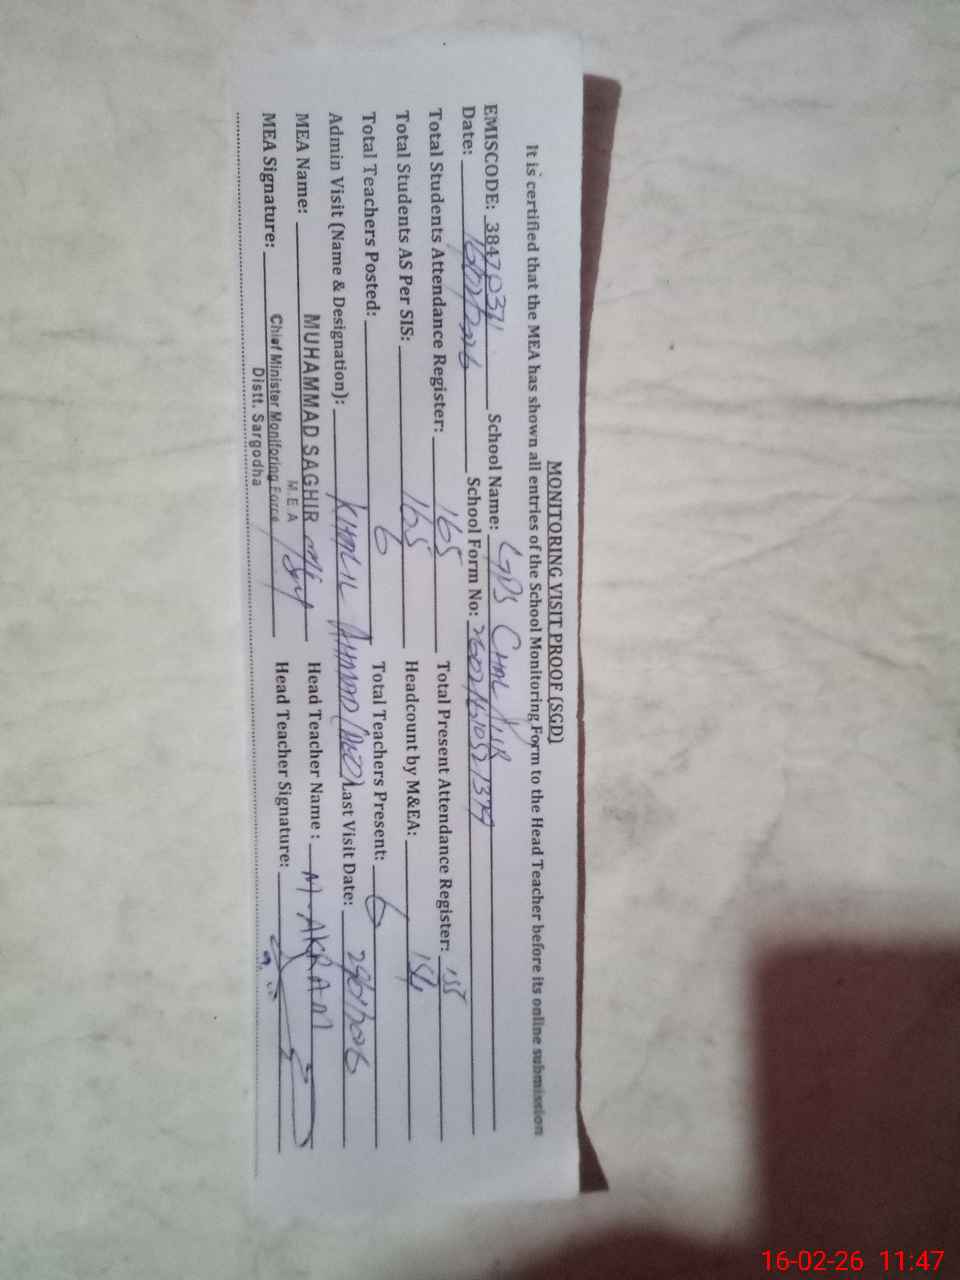 MONITORING VISIT PROOF (SGD)
It is certified that the MEA has shown all entries of the School Monitoring Form to the Head Teacher before its online submission
EMISCODE: 38470371 School Name: GPS
Date: 16/02/2026 School Form No:
Total Students Attendance Register: 165 Total Present Attendance Register: 155
Total Students AS Per SIS: 165 Headcount by M&EA: 154
Total Teachers Posted: 6 Total Teachers Present: 6
Admin Visit (Name & Designation): KHALIL AHMAD Last Visit Date:
MEA Name: MUHAMMAD SAGHIR Head Teacher Name : M. AKRAM
M.E.A
MEA Signature: Chief Minister Monitoring Force Head Teacher Signature:
Distt. Sargodha
16-02-26 11:47